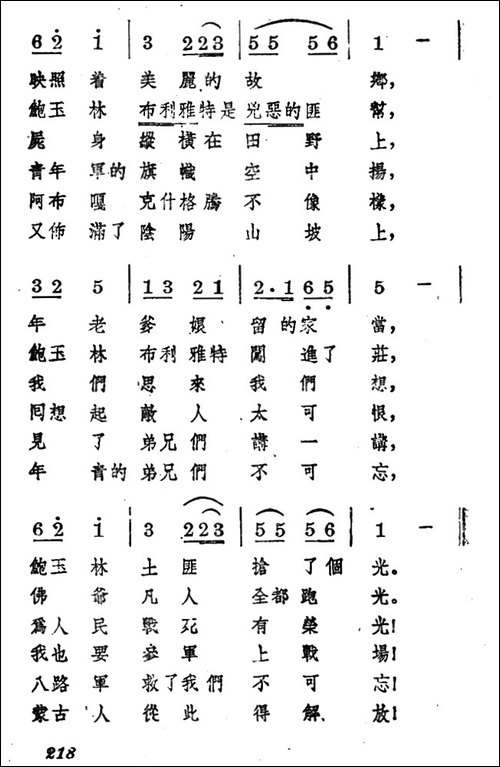 6 2 i | 3 2 2 3 | 5 5 5 6 | 1 — |
映照着美麗的故鄉，
鮑玉林布利雅特是兇惡的匪幫，
屍身縱橫在田野上，
青年軍的旗幟空中揚，
阿布嘎克什格騰不像樣，
又佈滿了陰陽山坡上，
3 2 5 | 1 3 2 1 | 2 · 1 6 5 | 5 — |
年老爹娘留的家當，
鮑玉林布利雅特闖進了莊，
我們思來我們想，
囘想起敵人太可恨，
見了弟兄們講一講，
年青的弟兄們不可忘，
6 2 i | 3 2 2 3 | 5 5 5 6 | 1 — ‖
鮑玉林土匪搶了個光。
佛爺凡人全都跑光。
爲人民戰死有榮光！
我也要參軍上戰場！
八路軍救了我們不可忘！
蒙古人從此得解放！
218